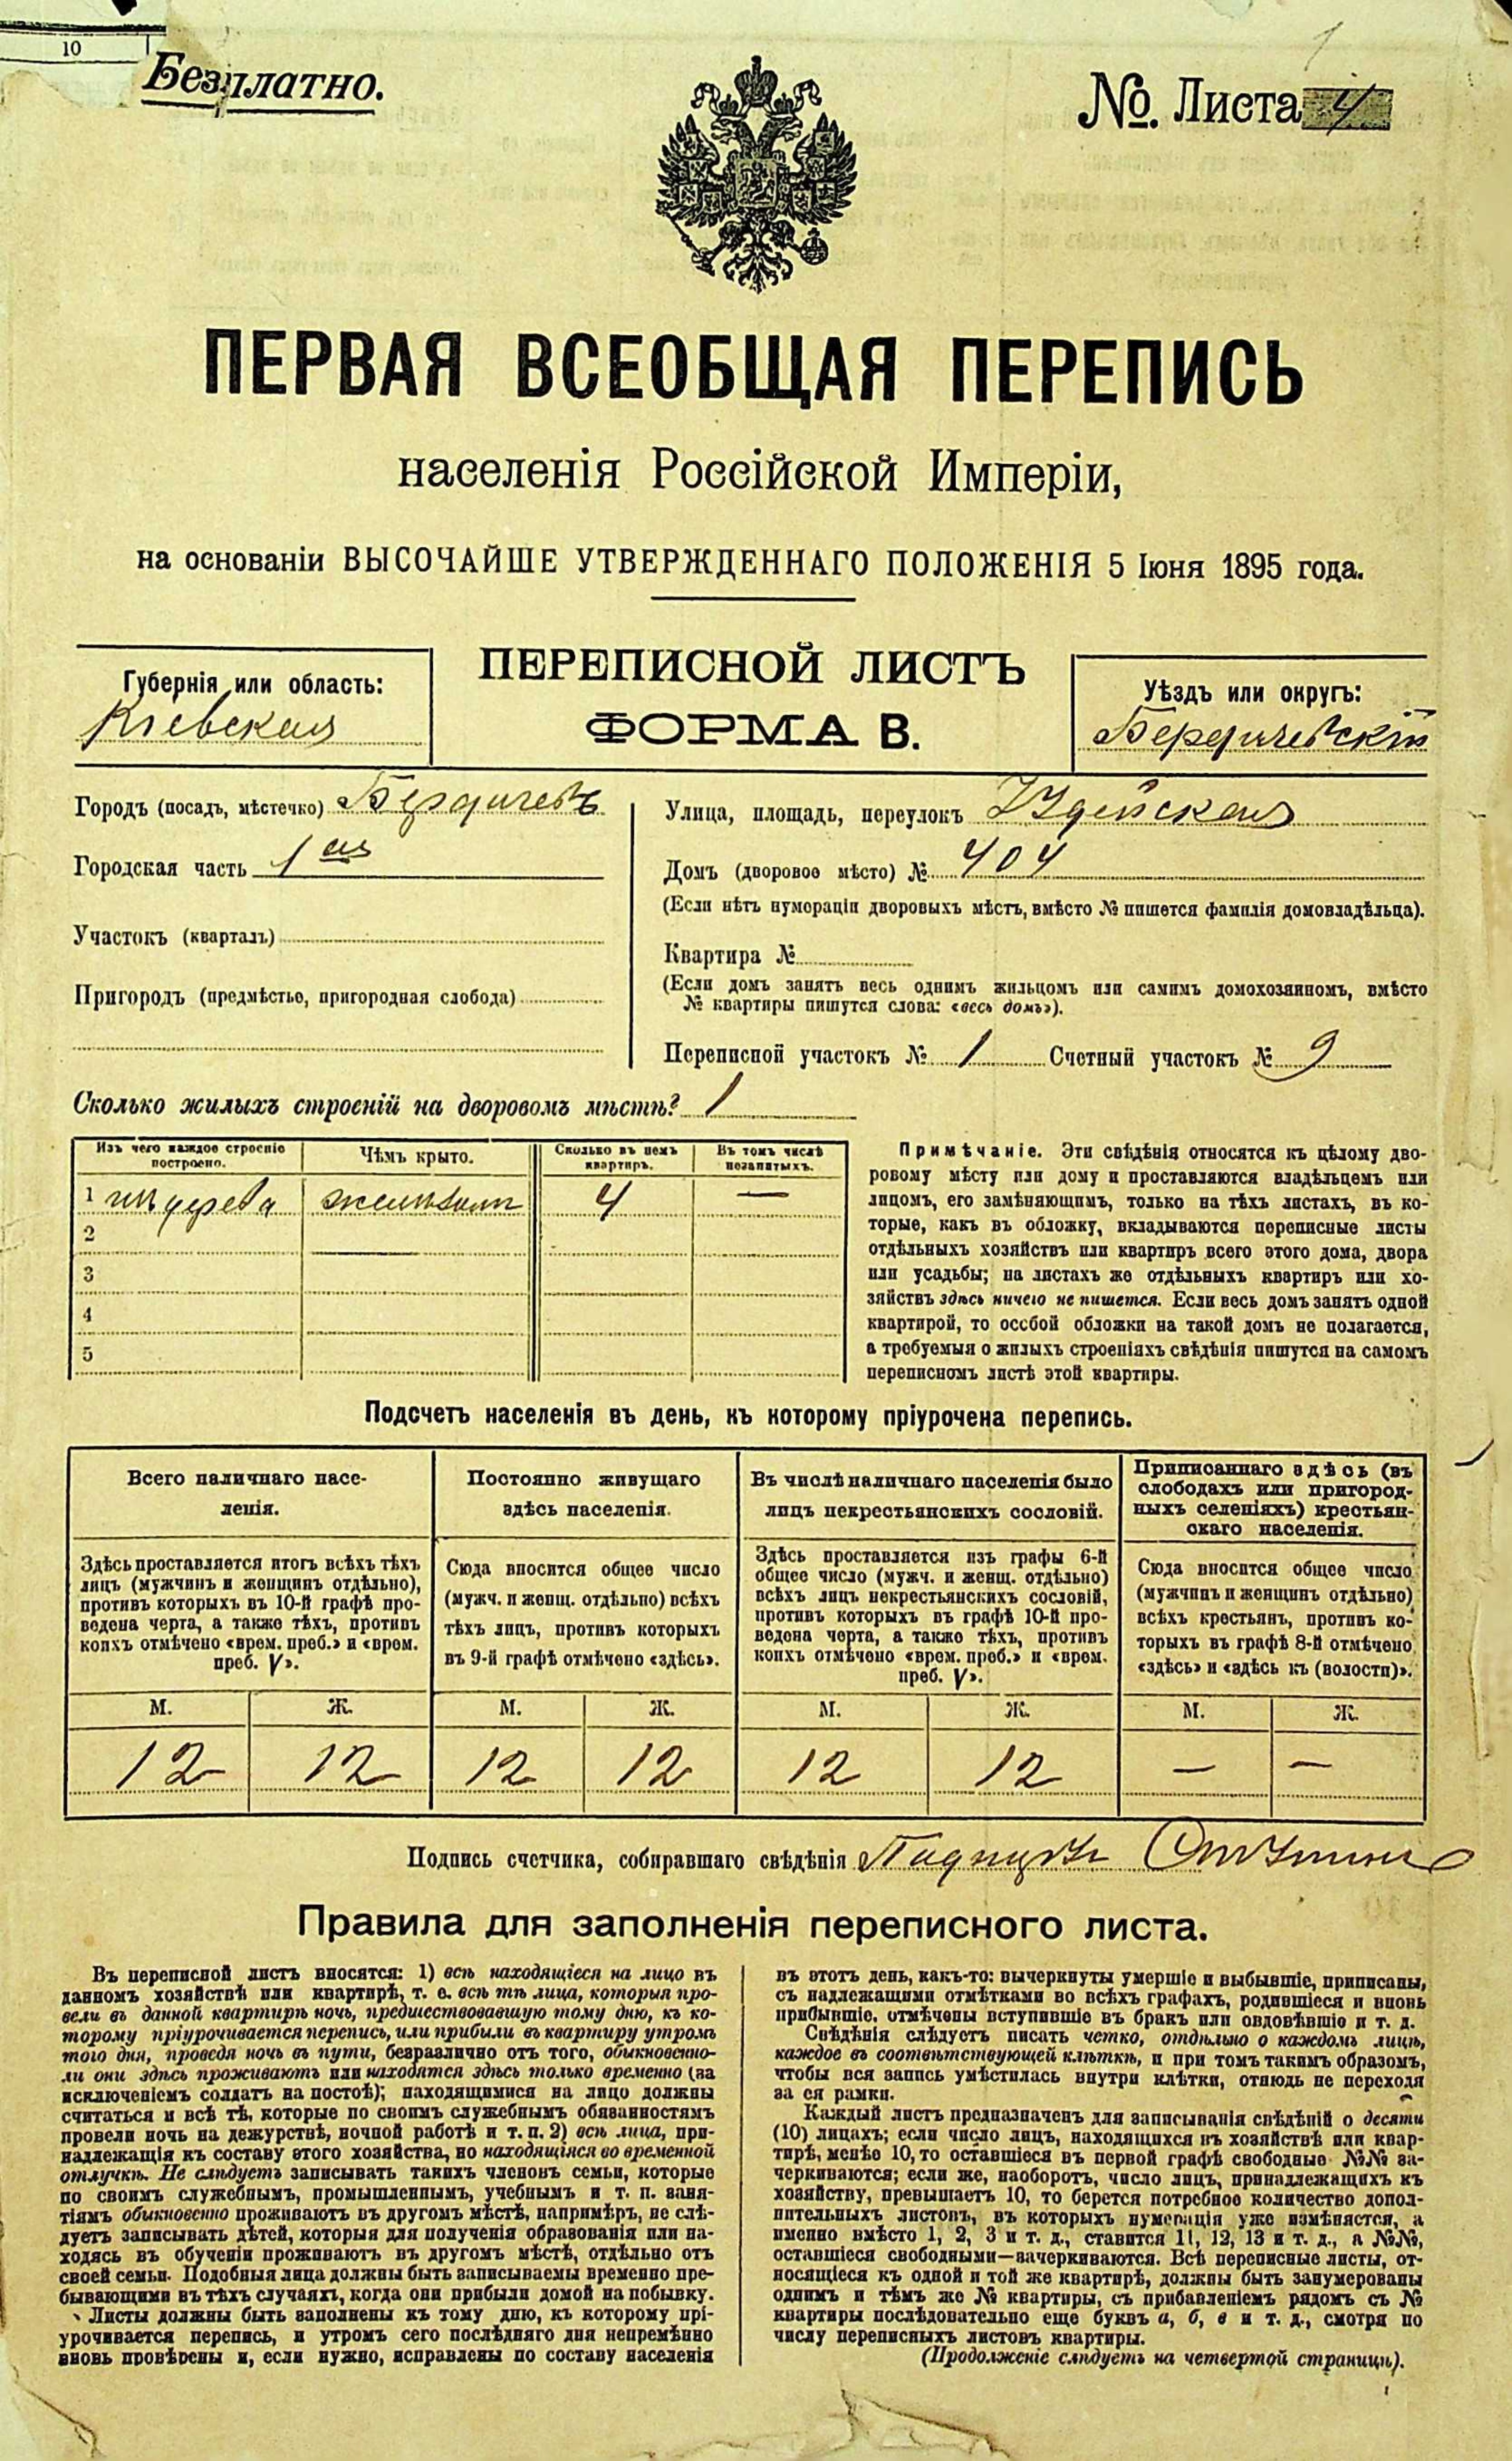 10
Безплатно.
№. Листа 4
ПЕРВАЯ ВСЕОБЩАЯ ПЕРЕПИСЬ
населенія Россійской Имперіи,
на основаніи ВЫСОЧАЙШЕ УТВЕРЖДЕННАГО ПОЛОЖЕНІЯ 5 Іюня 1895 года.
ПЕРЕПИСНОЙ ЛИСТЪ
ФОРМА В.
Губернія или область:
Кіевская
Уѣздъ или округъ:
Бердичевскій
Городъ (посадъ, мѣстечко) Бердичевъ
Городская часть 1ая
Участокъ (кварталъ)
Пригородъ (предмѣстье, пригородная слобода)
Улица, площадь, переулокъ
Домъ (дворовое мѣсто) № 404
(Если нѣтъ нумораціи дворовыхъ мѣстъ, вмѣсто № пишется фамилія домовладѣльца).
Квартира №
(Если домъ занятъ весь однимъ жильцомъ или самимъ домохозяиномъ, вмѣсто
№ квартиры пишутся слова: «весь домъ»).
Переписной участокъ № 1 Счетный участокъ № 9
Сколько жилыхъ строеній на дворовомъ мѣстѣ? 1
Изъ чего каждое строеніе
построено.
Чѣмъ крыто.
Сколько въ немъ
квартиръ.
Въ томъ числѣ
незанятыхъ.
1 изъ дерева 4 —
2
3
4
5
Примѣчаніе. Эти свѣдѣнія относятся къ цѣлому дво-
ровому мѣсту или дому и проставляются владѣльцемъ или
лицомъ, его замѣняющимъ, только на тѣхъ листахъ, въ ко-
торые, какъ въ обложку, вкладываются переписные листы
отдѣльныхъ хозяйствъ или квартиръ всего этого дома, двора
или усадьбы; на листахъ же отдѣльныхъ квартиръ или хо-
зяйствъ здѣсь ничего не пишется. Если весь домъ занятъ одной
квартирой, то особой обложки на такой домъ не полагается,
а требуемыя о жилыхъ строеніяхъ свѣдѣнія пишутся на самомъ
переписномъ листѣ этой квартиры.
Подсчетъ населенія въ день, къ которому пріурочена перепись.
Всего наличнаго насе-
ленія.
Постоянно живущаго
здѣсь населенія.
Въ числѣ наличнаго населенія было
лицъ некрестьянскихъ сословій.
Приписаннаго здѣсь (въ
слободахъ или пригород-
ныхъ селеніяхъ) крестьян-
скаго населенія.
Здѣсь проставляется итогъ всѣхъ тѣхъ
лицъ (мужчинъ и женщинъ отдѣльно),
противъ которыхъ въ 10-й графѣ про-
ведена черта, а также тѣхъ, противъ
коихъ отмѣчено «врем. преб.» и «врем.
преб. V».
Сюда вносится общее число
(мужч. и женщ. отдѣльно) всѣхъ
тѣхъ лицъ, противъ которыхъ
въ 9-й графѣ отмѣчено «здѣсь».
Здѣсь проставляется изъ графы 6-й
общее число (мужч. и женщ. отдѣльно)
всѣхъ лицъ некрестьянскихъ сословій,
противъ которыхъ въ графѣ 10-й про-
ведена черта, а также тѣхъ, противъ
коихъ отмѣчено «врем. преб.» и «врем.
преб. V».
Сюда вносится общее число
(мужчинъ и женщинъ отдѣльно)
всѣхъ крестьянъ, противъ ко-
торыхъ въ графѣ 8-й отмѣчено
«здѣсь» и «здѣсь къ (волости)».
М. Ж. М. Ж. М. Ж. М. Ж.
12 12 12 12 12 12 — —
Подпись счетчика, собиравшаго свѣдѣнія
Правила для заполненія переписного листа.
Въ переписной листъ вносятся: 1) всѣ находящіеся на лицо въ
данномъ хозяйствѣ или квартирѣ, т. е. всѣ тѣ лица, которыя про-
вели въ данной квартирѣ ночь, предшествовавшую тому дню, къ ко-
торому пріурочивается перепись, или прибыли въ квартиру утромъ
того дня, проведя ночь въ пути, безразлично отъ того, обыкновенно-
ли они здѣсь проживаютъ или находятся здѣсь только временно (за
исключеніемъ солдатъ на постоѣ); находящимися на лицо должны
считаться и всѣ тѣ, которые по своимъ служебнымъ обязанностямъ
провели ночь на дежурствѣ, ночной работѣ и т. п. 2) всѣ лица, при-
надлежащія къ составу этого хозяйства, но находящіяся во временной
отлучкѣ. Не слѣдуетъ записывать такихъ членовъ семьи, которые
по своимъ служебнымъ, промышленнымъ, учебнымъ и т. п. заня-
тіямъ обыкновенно проживаютъ въ другомъ мѣстѣ, напримѣръ, не слѣ-
дуетъ записывать дѣтей, которыя для полученія образованія или на-
ходясь въ обученіи проживаютъ въ другомъ мѣстѣ, отдѣльно отъ
своей семьи. Подобныя лица должны быть записываемы временно пре-
бывающими въ тѣхъ случаяхъ, когда они прибыли домой на побывку.
Листы должны быть заполнены къ тому дню, къ которому прі-
урочивается перепись, и утромъ сего послѣдняго дня непремѣнно
вновь провѣрены и, если нужно, исправлены по составу населенія
въ этотъ день, какъ-то: вычеркнуты умершіе и выбывшіе, приписаны,
съ надлежащими отмѣтками во всѣхъ графахъ, родившіеся и вновь
прибывшіе, отмѣчены вступившіе въ бракъ или овдовѣвшіе и т. д.
Свѣдѣнія слѣдуетъ писать четко, отдѣльно о каждомъ лицѣ,
каждое въ соотвѣтствующей клѣткѣ, и при томъ такимъ образомъ,
чтобы вся запись умѣстилась внутри клѣтки, отнюдь не переходя
за ея рамки.
Каждый листъ предназначенъ для записыванія свѣдѣній о десяти
(10) лицахъ; если число лицъ, находящихся въ хозяйствѣ или квар-
тирѣ, менѣе 10, то оставшіеся въ первой графѣ свободные №№ за-
черкиваются; если же, наоборотъ, число лицъ, принадлежащихъ къ
хозяйству, превышаетъ 10, то берется потребное количество допол-
нительныхъ листовъ, въ которыхъ нумерація уже измѣняется, а
именно вмѣсто 1, 2, 3 и т. д., ставится 11, 12, 13 и т. д., а №№,
оставшіеся свободными—зачеркиваются. Всѣ переписные листы, от-
носящіеся къ одной и той же квартирѣ, должны быть занумерованы
однимъ и тѣмъ же № квартиры, съ прибавленіемъ рядомъ съ №
квартиры послѣдовательно еще буквъ а, б, в и т. д., смотря по
числу переписныхъ листовъ квартиры.
(Продолженіе слѣдуетъ на четвертой страницѣ).